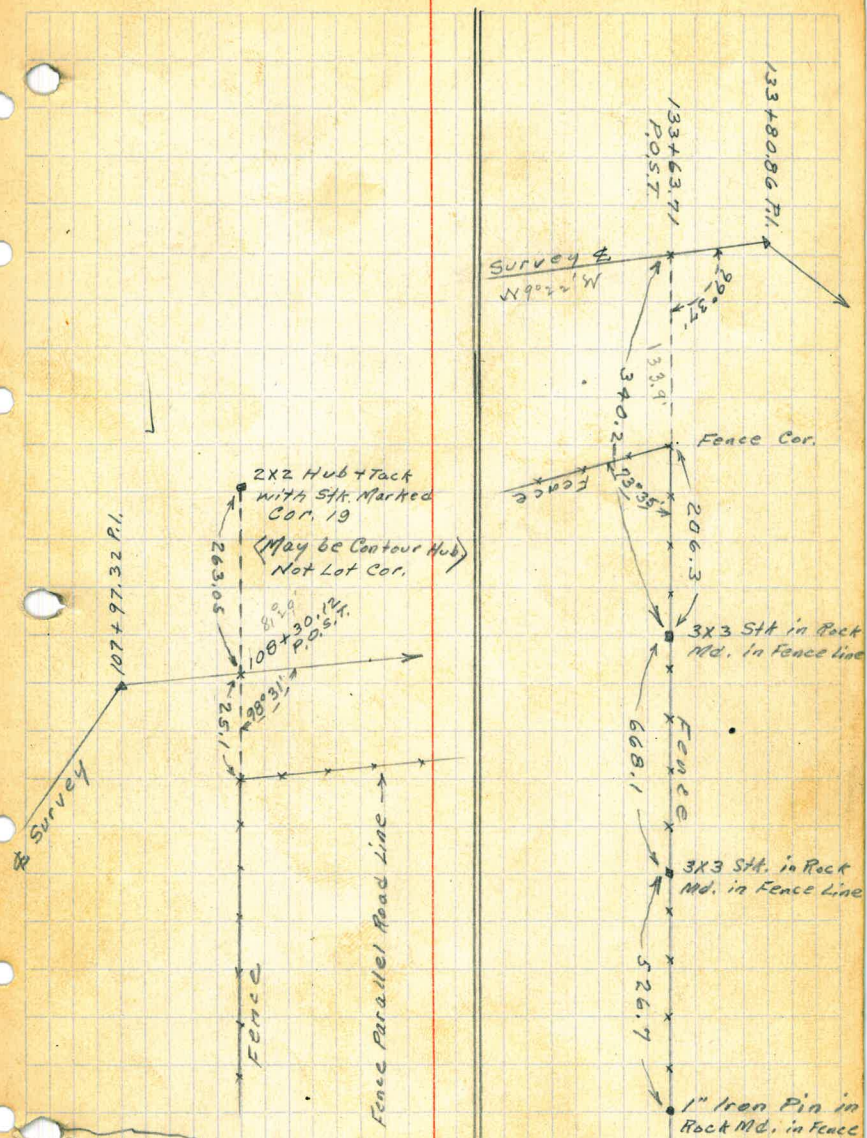 2X2 Hub + Tack
with Stk. Marked
Cor. 19
(May be Contour Hub)
Not Lot Cor.
263.05
107 + 97.32 P.I.
81°29'
108 + 30.12
P.O.S.T.
98°31'
25.1
℄ Survey
Fence
Fence Parallel Road Line
133 + 80.86 P.I.
133 + 63.71
P.O.S.T.
Survey ℄
99°37'
133.9'
340.2
Fence Cor.
Fence
73°35'
206.3
3X3 Stk in Rock
Md. in Fence Line
Fence
668.1
3X3 Stk. in Rock
Md. in Fence Line
526.7
1" Iron Pin in
Rock Md. in Fence